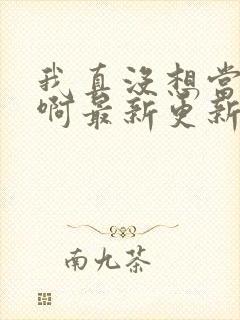 我真没想当
啊最新更新
南九茶